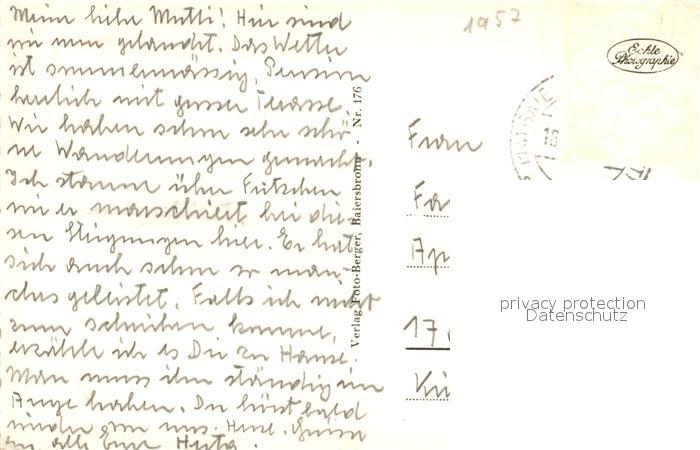 Meine liebe Mutti! Hier sind
wir nun gelandet. Das Wetter
ist sommermässig, Pension
herrlich mit grosser Terasse.
Wir haben schon sehr schö-
ne Wanderungen gemacht.
Ich staune über Fritzchen
wie er marschiert bei die-
sen Steigungen hier. Er hat
sich auch schon so man-
ches geleistet. Falls ich nicht
zum schreiben komme,
erzähle ich es Dir zu Hause.
Man muss ihn ständig im
Auge haben. Du hörst bald
wieder von uns. Herzl. Grüsse
an alle Eure Herta.
Verlag Foto-Berger, Baiersbronn - Nr. 176
1957
Echte
Photographie
Frau
Fa
Ap
17
Kü
privacy protection
Datenschutz